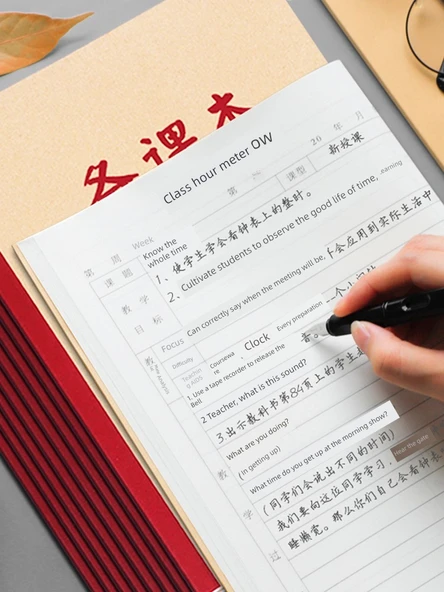 备课本
Class hour meter OW
20 年 月
第 周 Week 第 课型 新授课
课题 Know the whole time
教学目标
1、使学生学会看钟表上的整时。
2、Cultivate students to observe the good life of time, earning
会应用到实际生活中
Can correctly say when the meeting will be,
Focus
Difficulty
Every preparation
Teaching Aids
Courseware
、Clock
1. Use a tape recorder to release the Bell
音。
2 Teacher, what is this sound?
3.出示教科书第84页上的学生
What are you doing?
(In getting up)
What time do you get up at the morning show?
(同学们会说出不同的时间)
Hear the gate
我们要向这位同学学习,
睡懒觉。那么你们自己会看钟表
教学过